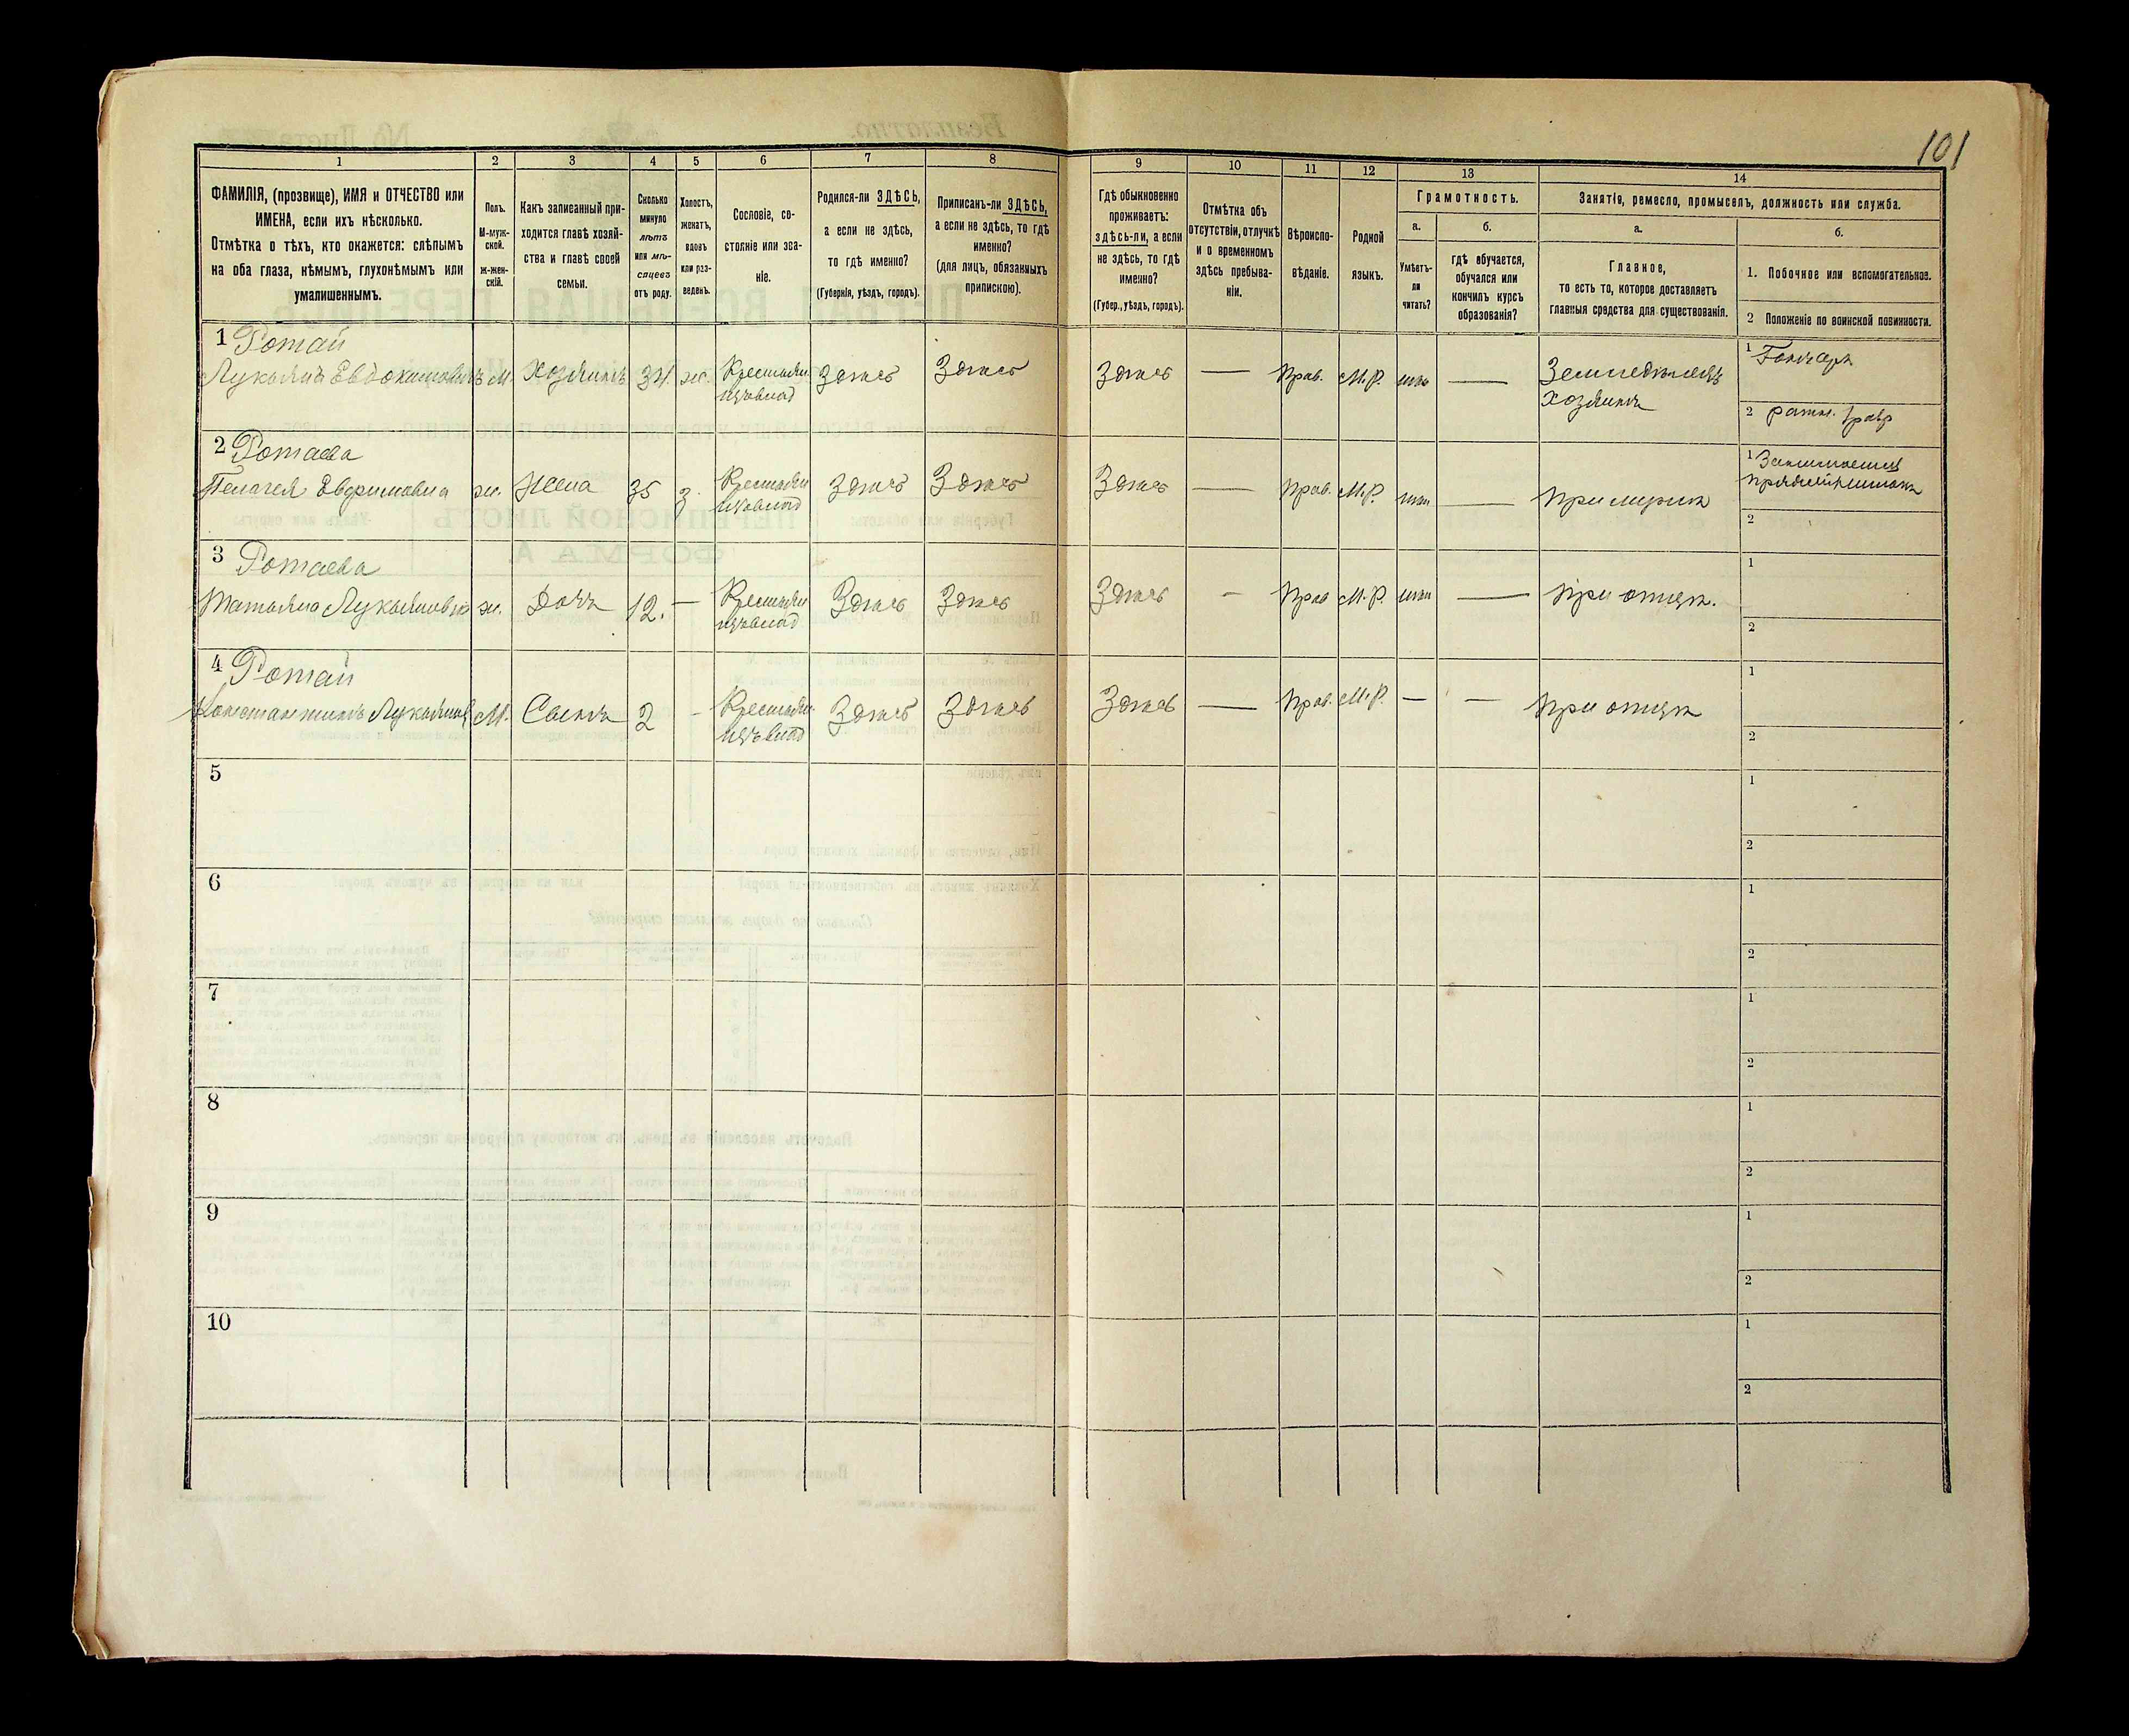 101
1 2 3 4 5 6 7 8 9 10 11 12 13 14
ФАМИЛІЯ, (прозвище), ИМЯ и ОТЧЕСТВО или
ИМЕНА, если ихъ нѣсколько.
Отмѣтка о тѣхъ, кто окажется: слѣпымъ
на оба глаза, нѣмымъ, глухонѣмымъ или
умалишеннымъ.
Полъ.
М-муж-
ской.
ж-жен-
скій.
Какъ записанный при-
ходится главѣ хозяй-
ства и главѣ своей
семьи.
Сколько
минуло
лѣтъ
или мѣ-
сяцевъ
отъ роду.
Холостъ,
женатъ,
вдовъ
или раз-
веденъ.
Сословіе, со-
стояніе или зва-
ніе.
Родился-ли ЗДѢСЬ,
а если не здѣсь,
то гдѣ именно?
(Губернія, уѣздъ, городъ).
Приписанъ-ли ЗДѢСЬ,
а если не здѣсь, то гдѣ
именно?
(для лицъ, обязанныхъ
припискою).
Гдѣ обыкновенно
проживаетъ:
здѣсь-ли, а если
не здѣсь, то гдѣ
именно?
(Губер., уѣздъ, городъ).
Отмѣтка объ
отсутствіи, отлучкѣ
и о временномъ
здѣсь пребыва-
ніи.
Вѣроиспо-
вѣданіе.
Родной
языкъ.
Грамотность.
а.
Умѣетъ-
ли
читать?
б.
гдѣ обучается,
обучался или
кончилъ курсъ
образованія?
Занятія, ремесло, промыселъ, должность или служба.
а.
Главное,
то есть то, которое доставляетъ
главныя средства для существованія.
б.
1. Побочное или вспомогательное.
2 Положеніе по воинской повинности.
1 Ротай
Лукьянъ Евдокимовичъ М. Хозяинъ 34. ж. Крестьян. изъ влад Здѣсь Здѣсь Здѣсь — Прав. М.Р. — Земледѣлецъ
Хозяинъ
1 Гончаръ
2 ратн.
2 Ротаева
Пелагея Евфимовна ж. Жена 35 З. Крестьян изъ влад Здѣсь Здѣсь Здѣсь — Прав. М.Р. — При мужѣ
1 Занимается
2
3 Ротаева
Татьяна Лукьяновна ж. Дочь 12. — Крестьян изъ влад. Здѣсь Здѣсь Здѣсь — Прав М.Р. — При отцѣ.
1
2
4 Ротай
Константинъ Лукьянов М. Сынъ 2 - Крестьян. изъ влад Здѣсь Здѣсь Здѣсь — Прав. М.Р. — — При отцѣ
1
2
5
1
2
6
1
2
7
1
2
8
1
2
9
1
2
10
1
2